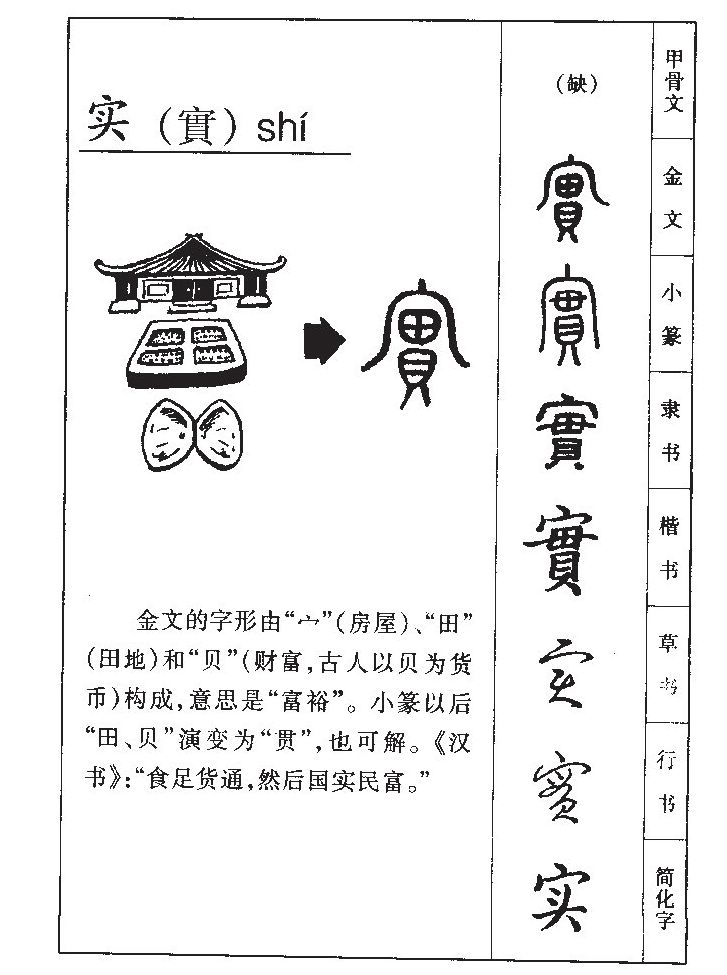 实（實）shí
金文的字形由“宀”（房屋）、“田”
（田地）和“贝”（财富，古人以贝为货
币）构成，意思是“富裕”。小篆以后
“田、贝”演变为“贯”，也可解。《汉
书》：“食足货通，然后国实民富。”
（缺）
甲骨文
實
金文
實
小篆
實
隶书
實
楷书
实
草书
實
行书
实
简化字